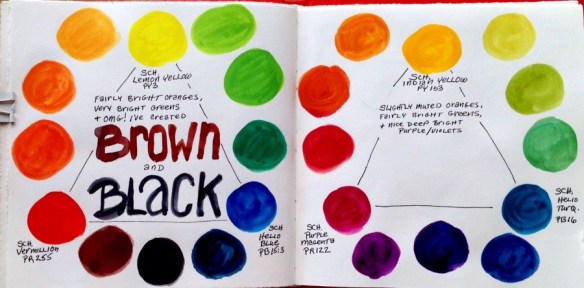 SCH.
LEMON YELLOW
PY3
FAIRLY BRIGHT ORANGES,
VERY BRIGHT GREENS
+ OMG! I'VE CREATED
BROWN
AND
BLACK
SCH
VERMILLION
PR255
SCH
HELIO
BLUE
PB15:3
SCH.
INDIAN YELLOW
PY153
SLIGHTLY MUTED ORANGES,
FAIRLY BRIGHT GREENS,
+ NICE DEEP BRIGHT
PURPLE/VIOLETS
SCH.
PURPLE
MAGENTA
PR122
SCH.
HELIO
TURQ.
PB16